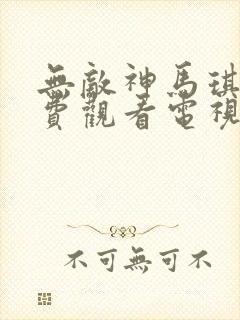 無敵神馬琪
費觀看電視
不可無可不